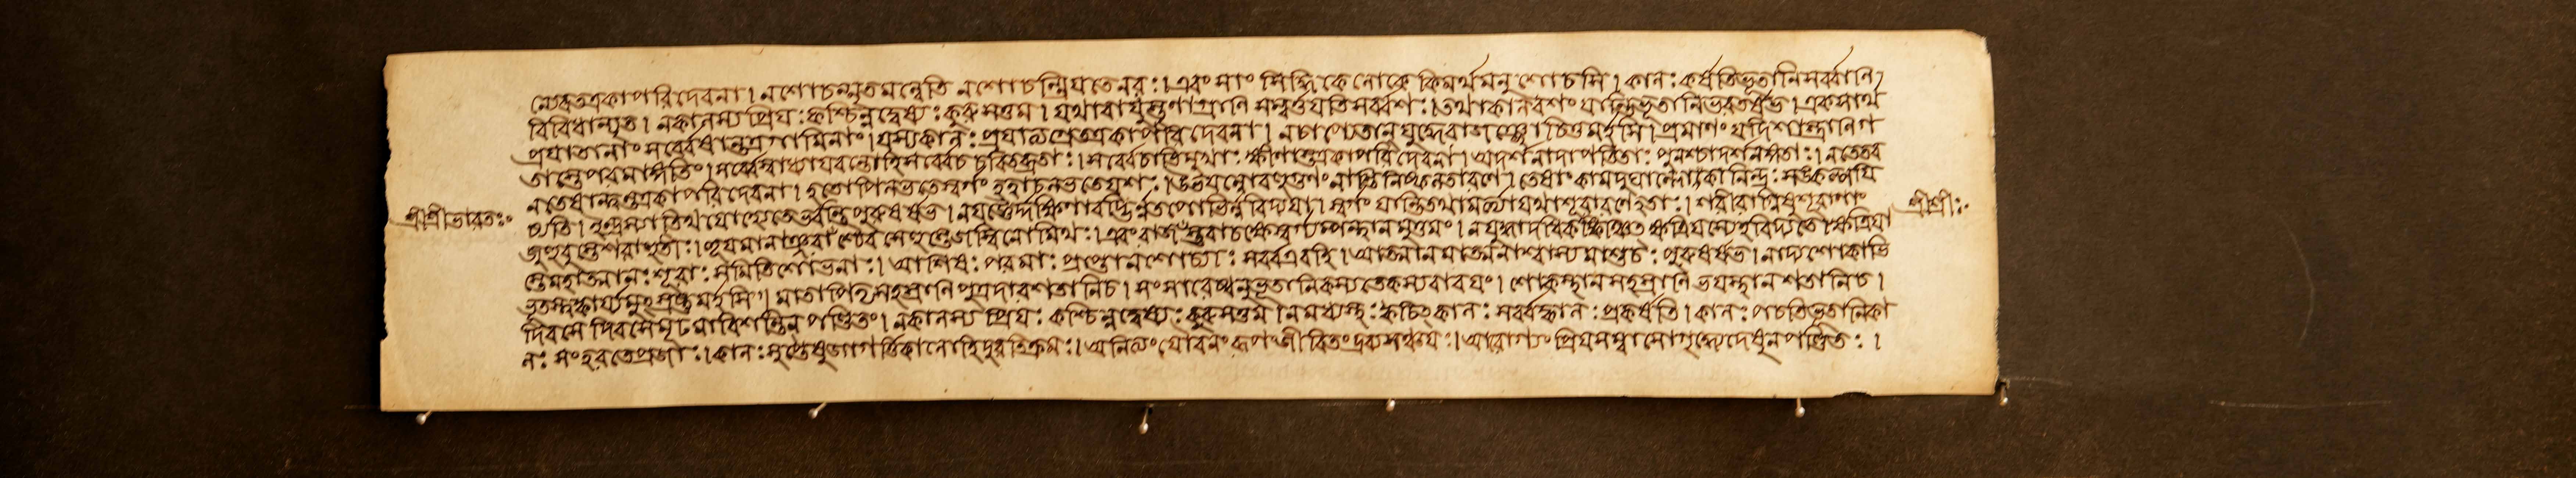 ন্যেবতত্রকাপরিদেবনা। নশোচন্মৃতমন্বেতি নশোচন্ম্রিয়তেনরঃ।এবং সাং সিদ্ধিকে লোকে কিমর্থমনু শোচসি। কালঃ কর্ষতিভূতানিসর্ব্বানি
বিবিধান্যুত। নকালস্য প্রিয়ঃ কশ্চিন্নদ্বেষ্যঃ কুরু সত্তম। যথাবায়ুস্তৃণাগ্রাণি সম্বর্ত্তয়তিসর্ব্বশঃ।তথাকালবশং যান্তিভূতানিভরতর্ষভ। একসার্থ
প্রযাতানাং সর্ব্বেষান্তত্রগামিনাং। যস্যকালঃ প্রযাত্যগ্রেতত্রকাপরিদেবনা। নচাপ্যেতান্ যুদ্ধেরাজঞ্ছোচিতুমর্হসি। প্রমাণং যদিশাস্ত্রানিগ
তাস্তেপরমাঙ্গতিং। সর্ব্বেস্বাধ্যায়বন্তোহিসর্ব্বেচ চরিতব্রতাঃ। সর্ব্বেচাভিমুখাঃ ক্ষীণাস্তত্রকাপরিদেবনা। অদর্শনাদাপতিতাঃ পুনশ্চাদর্শনঙ্গতাঃ। নতেতব
নতেষান্ত্বন্তত্রকাপরিদেবনা। হতোপিলভতেস্বর্গং হত্বাচলভতেযশঃ।উভয়ন্নোবহুগুণং নাস্তিনিষ্ফলতারণে। তেষাং কামদুঘাল্লোকানিন্দ্রঃ সঙ্কল্পয়ি
ষ্যতি। ইন্দ্রস্যাতিথয়োহ্যেতেভবন্তিপুরুষর্ষভ। নযজ্ঞৈর্দ্দক্ষিণাবদ্ভির্ন্নতপোভির্ন্ন বিদ্যয়া। স্বর্গং যান্তিতথামর্ত্ত্যাযথাশূরারণেহতাঃ। শরীরাগ্নিষুশূরাণাং
জুহুবুস্তেশরাহুতীঃ। হূয়মানাঞ্ছরাংশ্চৈব সেহুস্তেজস্বিনোমিথঃ।এবং রাজংস্তবাচক্ষেস্বর্গ্যম্পন্থানমুত্তমং। নযুদ্ধাদধিকঙ্কিঞ্চিত্ ক্ষত্রিয়স্যেহবিদ্যতে। ক্ষত্রিয়া
স্তেমহাত্মানঃ শূরাঃ সমিতিশোভনাঃ। আশিষঃ পরমাঃ প্রাপ্তানশোচ্যাঃ সর্ব্বএবহি। আত্মানমাত্মনাশ্বাস্য মাশুচঃ পুরুষর্ষভ। নাদ্যশোকাভি
ভূতস্ত্বঙ্কার্য্যমুৎস্রষ্টুমর্হসি। মাতাপিতৃসহস্রাণি পুত্রদারশতানিচ। সংসারেষ্বনুভূতানিকস্যতেকস্যবাবয়ং। শোকস্থান সহস্রাণি ভয়স্থান শতানিচ।
দিবসে দিবসেমূঢ়মাবিশন্তিন পণ্ডিতং। নকালস্য প্রিয়ঃ কশ্চিন্নদ্বেষ্যঃ কুরুসত্তম নমধ্যস্থঃ ক্বচিৎকালঃ সর্ব্বঙ্কালঃ প্রকর্ষতি। কালঃ পচতিভূতানিকা
লঃ সংহরতেপ্রজাঃ।কালঃ সুপ্তেষুজাগর্ত্তিকালোহিদুরতিক্রমঃ। অনিত্যং যৌবনং রূপংজীবিতংদ্রব্যসঞ্চয়ঃ।আরোগ্যং প্রিয়সম্বাসোগৃধ্যেদেষুনপণ্ডিতঃ।
শ্রীশ্রীভারতঃ
শ্রীশ্রীঃ